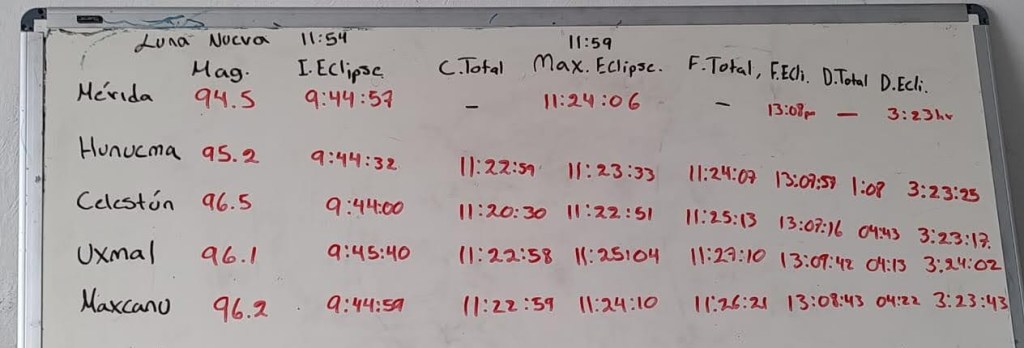 Luna Nueva 11:54 11:59
Mag. I.Eclipse C.Total Max.Eclipse. F.Total, F.Ecli. D.Total D.Ecli.
Mérida 94.5 9:44:57 – 11:24:06 – 13:08pm – 3:23hr
Hunucma 95.2 9:44:32 11:22:59 11:23:33 11:24:07 13:07:57 1:08 3:23:25
Celestún 96.5 9:44:00 11:20:30 11:22:51 11:25:13 13:07:16 04:43 3:23:17
Uxmal 96.1 9:45:40 11:22:58 11:25:04 11:27:10 13:09:42 04:13 3:24:02
Maxcanu 96.2 9:44:59 11:22:59 11:24:10 11:26:21 13:08:43 04:22 3:23:43